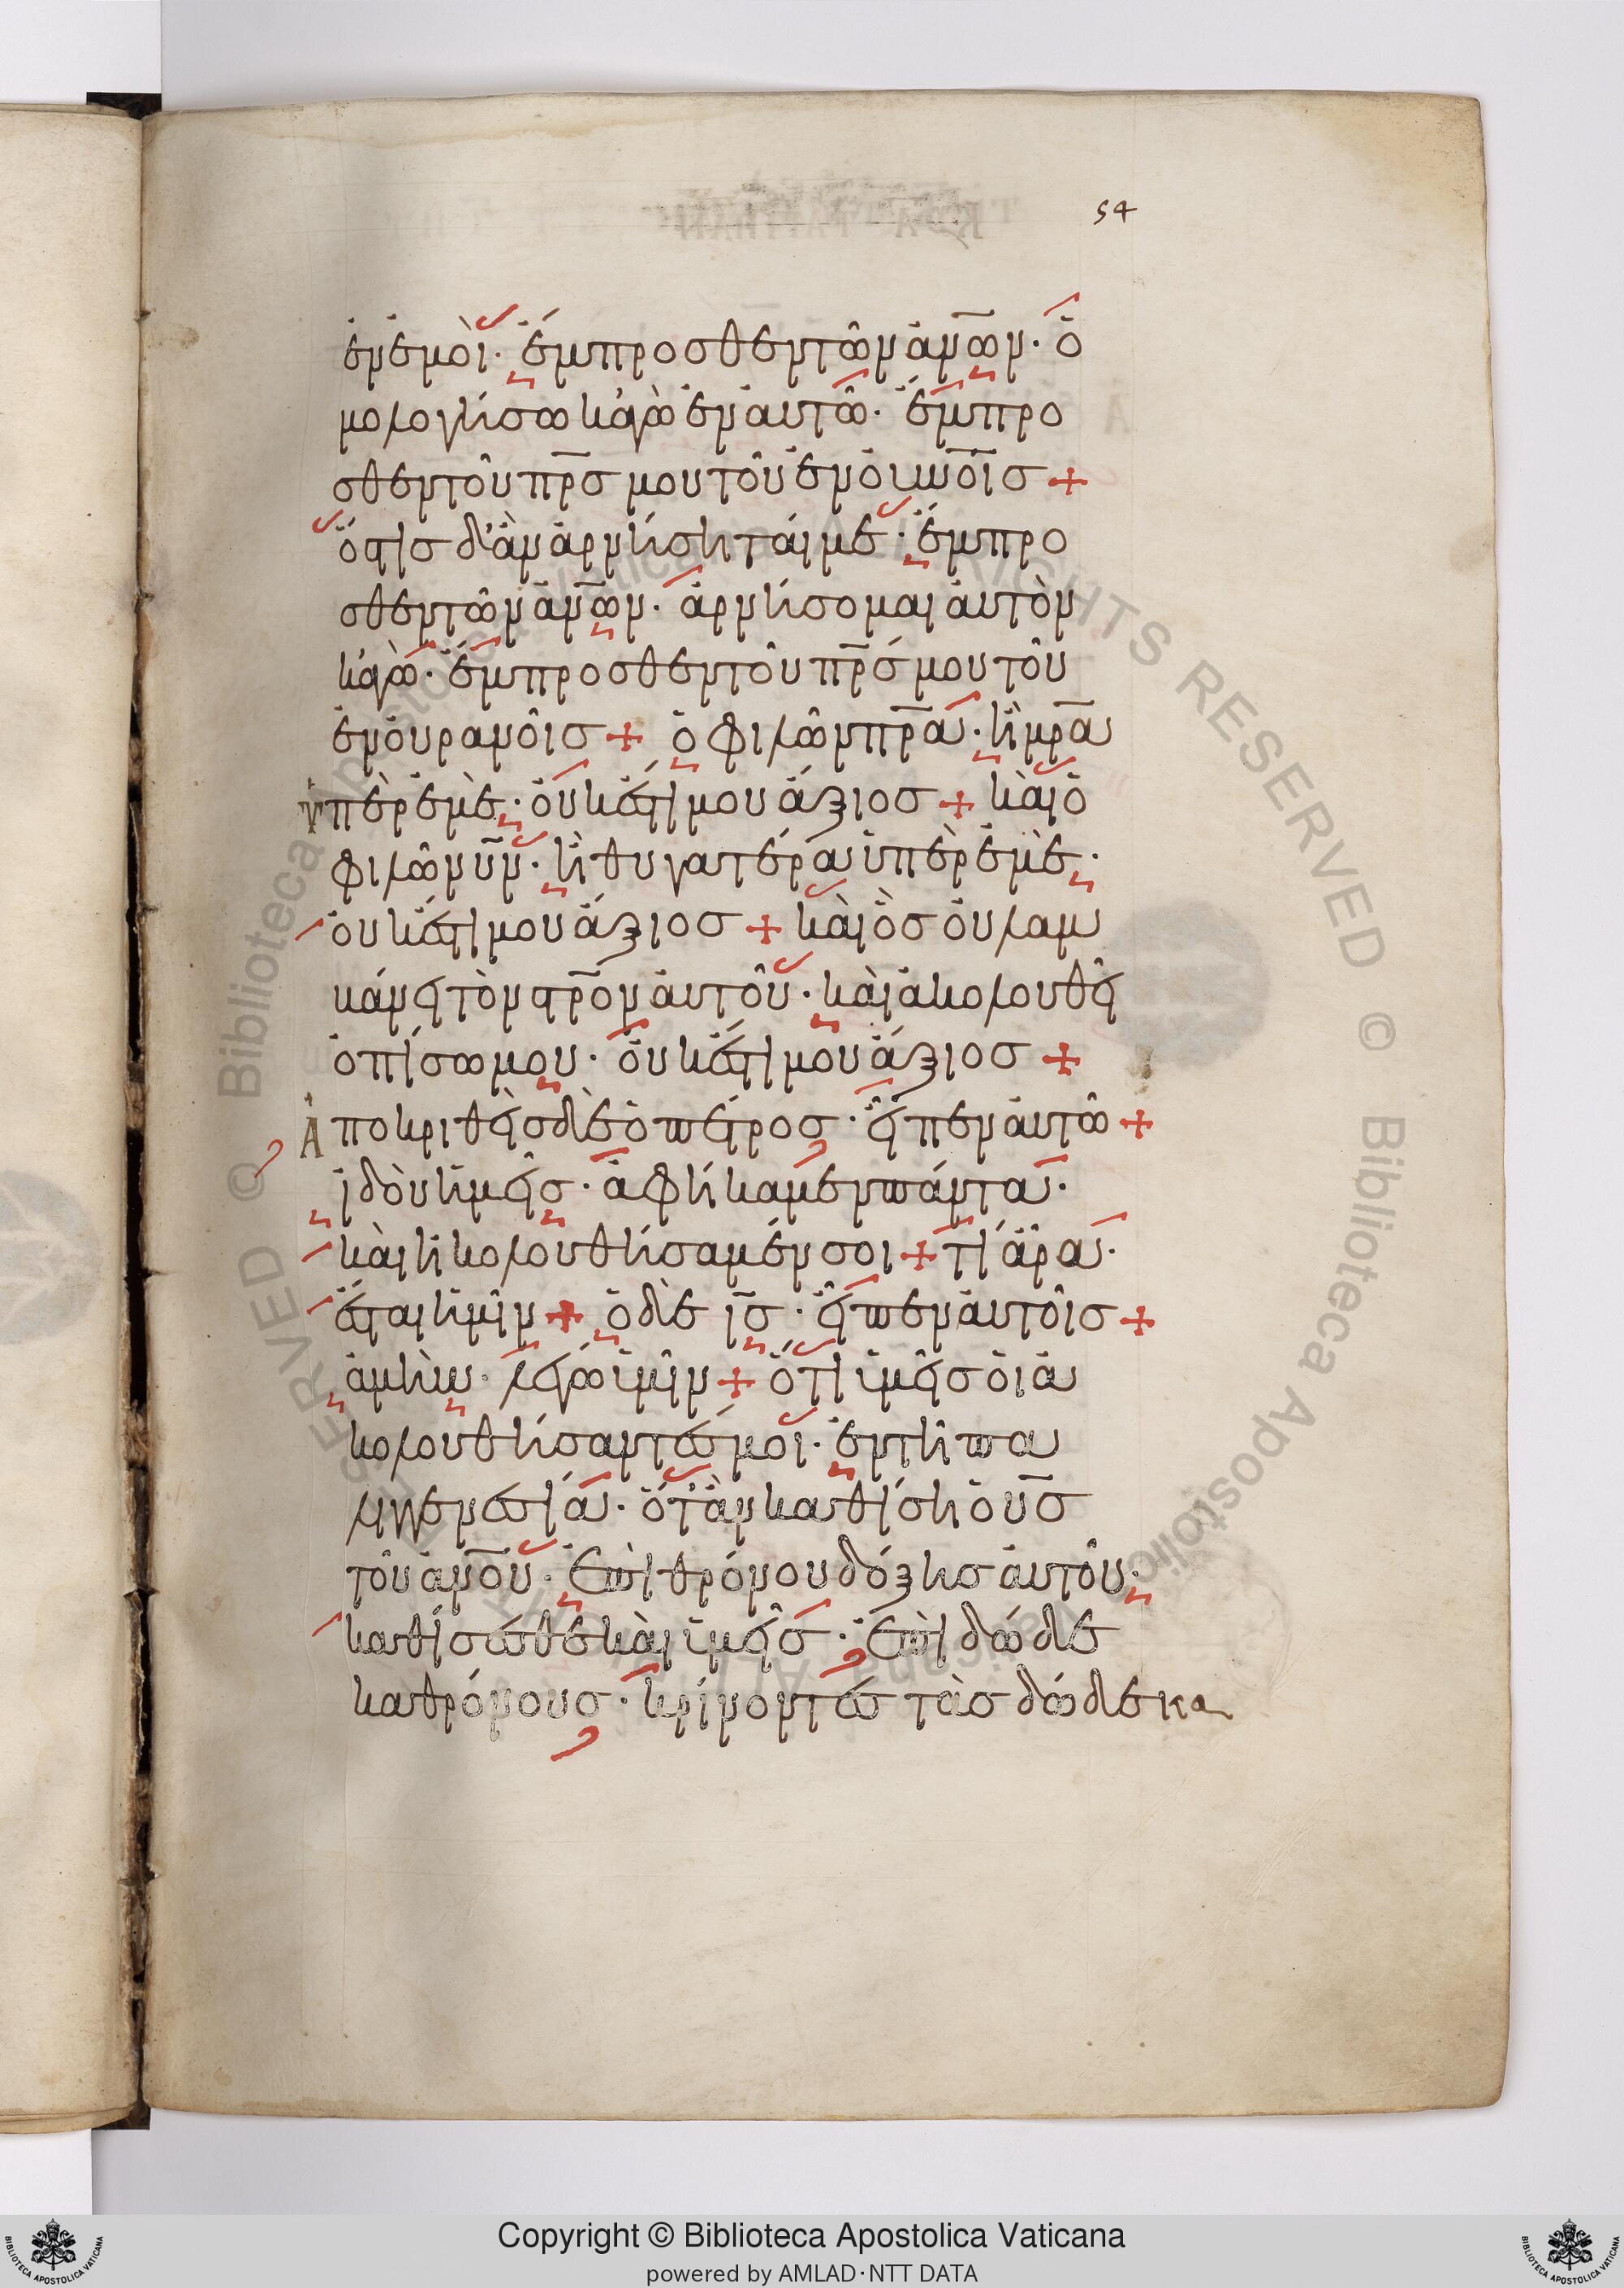 54
ἐν ἐμοὶ· ἔμπροσθεν τῶν ἀνων· ὁ
μολογήσω κἀγὼ ἐν αυτῶ· ἔμπρο
σθεν τοῦ πρσ μου τοῦ ἐν ὀυνοισ +
ὅστισ δ' ἂν ἀρνήσηται με· ἔμπρο
σθεν τῶν ἀνων· ἀρνήσομαι ἀυτὸν
κἀγὼ· ἔμπροσθεν τοῦ πρσ μου τοῦ
ἐν ὀυρανοῖσ + ὁ φιλῶν πρα· ἢ μρα
ὑπὲρ ἐμὲ· ὀυκ ἔστι μου ἄξιοσ + καὶ ὁ
φιλῶν υν· ἢ θυγατέρα ὑπὲρ ἐμὲ·
ὀυκ ἔστι μου ἄξιοσ + καὶ ὃσ ὀυ λαμ
βάνει τὸν στρον ἀυτοῦ· καὶ ἀκολουθεῖ
ὀπίσω μου· ὀυκ ἔστι μου ἄξιοσ +
Ἀποκριθεὶσ δὲ ὁ πέτροσ· εἶπεν ἀυτῶ +
ἰδοὺ ἡμεῖσ· ἀφήκαμεν πάντα·
καὶ ἠκολουθήσαμέν σοι + τί ἄρα·
ἔσται ἡμῖν + ὁ δὲ ισ· εἶπεν ἀυτοῖσ +
ἀμὴν· λέγω ὑμῖν + ὅτι ὑμεῖσ ὁι ἀ
κολουθήσαντέσ μοι· ἐν τῆ πα
λιγγενεσία· ὅτ' ἂν καθίση ὁ υσ
τοῦ ἀνου· ἐπὶ θρόνου δόξησ ἀυτοῦ·
καθίσεσθε καὶ ὑμεῖσ· ἐπὶ δώδε
κα θρόνουσ· κρίνοντεσ τὰσ δώδεκα
Copyright © Biblioteca Apostolica Vaticana
powered by AMLAD·NTT DATA